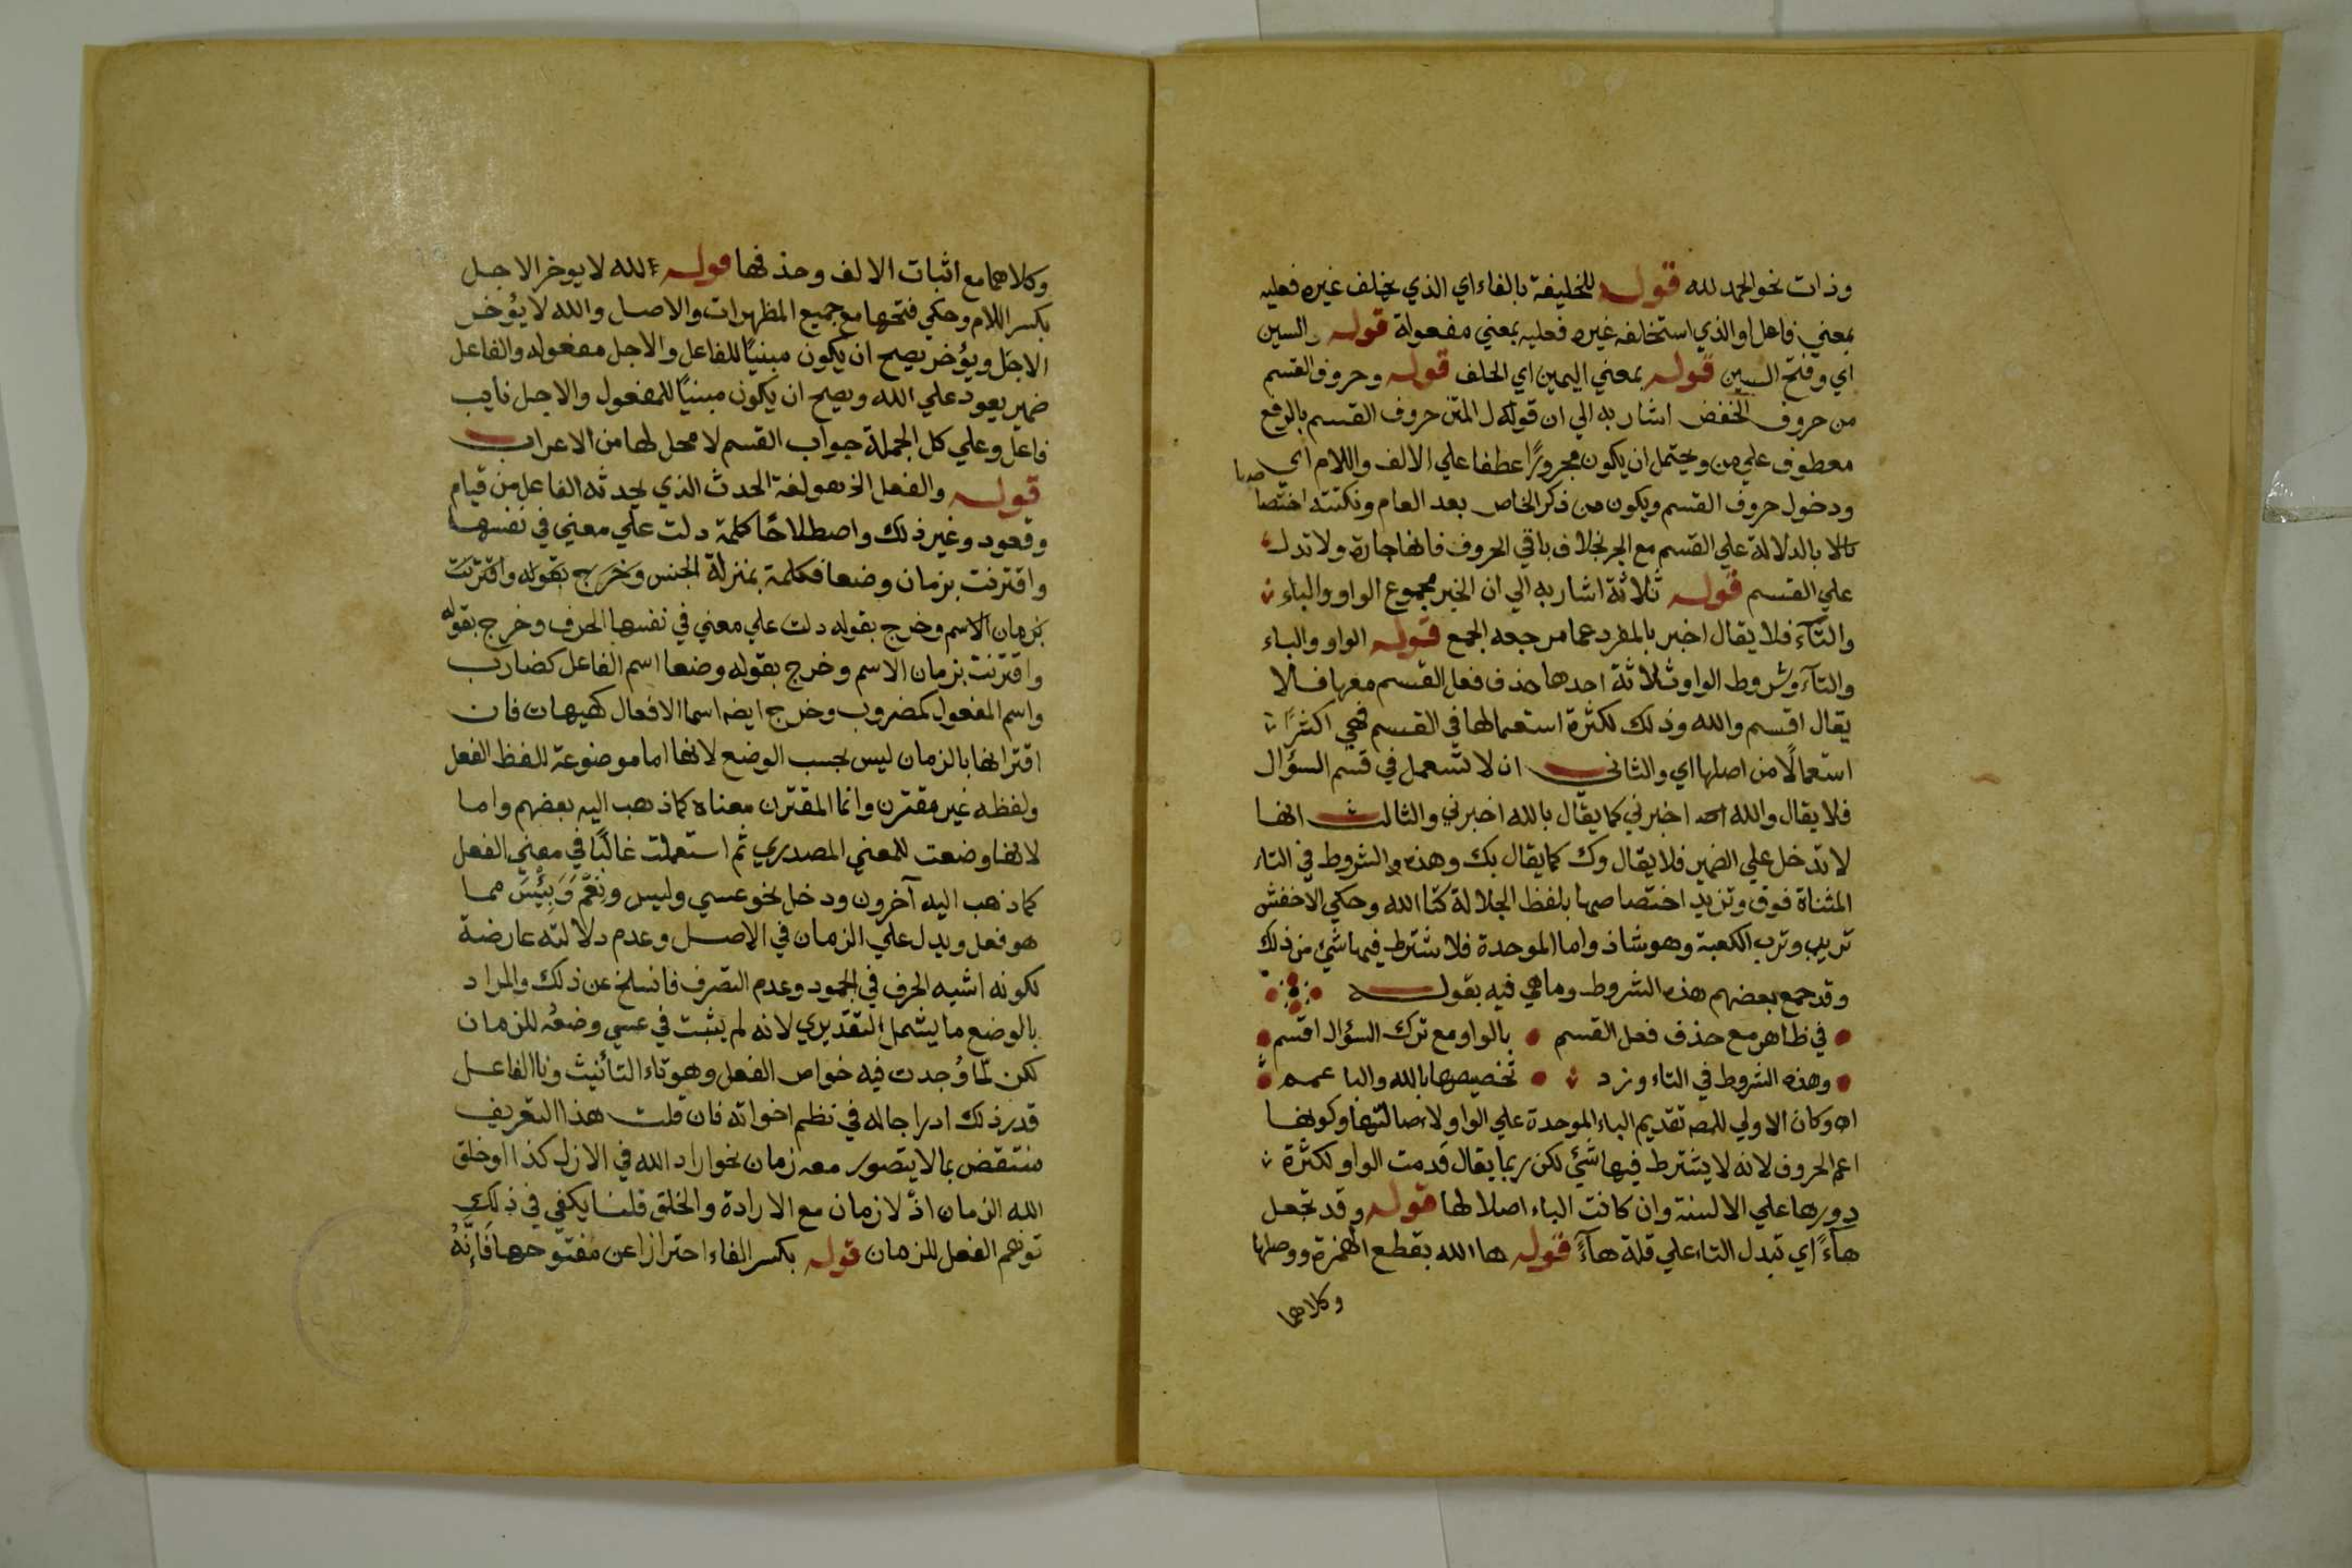 وذات نحو الحمد لله قوله للخليفة بالفاء اي الذي يخلف غيره فعليه
بمعني فاعل او الذي استخلفه غيره فعليه بمعني مفعولة قوله والسين
اي وفتح السين قوله بمعني اليمين اي الحلف قوله وحروف القسم
من حروف الخفض اشار به الي ان قوله ل المتن حروف القسم بالرفع
معطوف علي من ويحتمل ان يكون مجرورًا عطفا علي الالف واللام اي
ودخول حروف القسم ويكون من ذكر الخاص بعد العام ونكتته اختصاصها
بالدلالة علي القسم مع الجر بخلاف باقي الحروف فانها جارة ولا تدل
علي القسم قوله ثلاثة اشار به الي ان الخبر مجموع الواو والباء
والتآء فلا يقال اخبر بالمفرد عما مرجعه الجمع قوله الواو والباء
والتآء وشروط الواو ثلاثة احدها حذف فعل القسم معها فلا
يقال اقسم والله وذلك لكثرة استعمالها في القسم فهي اكثر
استعمالًا من اصلها اي والثاني ان لا تستعمل في قسم السؤال
فلا يقال والله اخبرني كما يقال بالله اخبرني والثالث انها
لا تدخل علي الضمير فلا يقال وك كما يقال بك وهذه الشروط في التاء
المثناة فوق وتزيد اختصاصها بلفظ الجلالة كتا الله وحكي الاخفش
تربي وترب الكعبة وهو شاذ واما الموحدة فلا تشترط فيها شيء من ذلك
وقد جمع بعضهم هذه الشروط وما هي فيه بقوله
في ظاهر مع حذف فعل القسم بالواو مع ترك السؤال اقسم
وهذه الشروط في التاء وزد تخصيصها بالله والبا عمم
اه وكان الاولي للمص تقديم الباء الموحدة علي الواو لاصالتها وكونها
اعم الحروف لانه لا يشترط فيها شيء لكن ربما يقال قدمت الواو لكثرة
دورها علي الالسنة وان كانت الباء اصلا لها قوله وقد تجعل
هآءً اي تبدل التاء علي قلة هآءً قوله ها الله بقطع الهمزة ووصلها
وكلاهما
وكلاهما مع اثبات الالف وحذفها قوله لله لا يوخر الاجل
بكسر اللام وحكي فتحها مع جميع المظهرات والاصل والله لا يؤخر
الاجل ويؤخر يصح ان يكون مبنيًا للفاعل والاجل مفعوله والفاعل
ضمير يعود علي الله ويصح ان يكون مبنيًا للمفعول والاجل نايب
فاعل وعلي كل الجملة جواب القسم لا محل لها من الاعراب
قوله والفعل الخ هو لغة الحدث الذي يحدثه الفاعل من قيام
وقعود وغير ذلك واصطلاحًا كلمة دلت علي معني في نفسها
واقترنت بزمان وضعا فكلمة بمنزلة الجنس وخرج بقوله واقترنت
بزمان الاسم وخرج بقوله دلت علي معني في نفسها الحرف وخرج بقوله
واقترنت بزمان الاسم وخرج بقوله وضعا اسم الفاعل كضارب
واسم المفعول كمضروب وخرج ايضه اسما الافعال كهيهات فان
اقترانها بالزمان ليس بحسب الوضع لانها اما موضوعة للفظ الفعل
ولفظه غير مقترن وانما المقترن معناه كما ذهب اليه بعضهم واما
لانها وضعت للمعني المصدري ثم استعملت غالبًا في معني الفعل
كما ذهب اليه آخرون ودخل نحو عسي وليس ونِعْمَ وَبِئْسَ مما
هو فعل ويدل علي الزمان في الاصل وعدم دلالته عارضة
لكونه اشبه الحرف في الجمود وعدم التصرف فانسلخ عن ذلك والمراد
بالوضع ما يشمل التقديري لانه لم يثبت في عسي وضعه للزمان
لكن لمّا وُجدت فيه خواص الفعل وهو تاء التأنيث وتا الفاعل
قدر ذلك ادراجا له في نظم اخواته فان قلت هذا التعريف
منتقض بما لا يتصور معه زمان نحو اراد الله في الازل كذا او خلق
الله الزمان اذ لا زمان مع الارادة والخلق قلنا يكفي في ذلك
توهم الفعل للزمان قوله بكسر الفاء احترازا عن مفتوحها فَإِنَّهُ